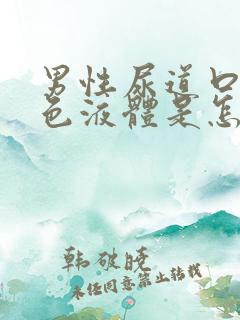 男性尿道口
色液體是怎
韩破晓
未经同意禁止转载